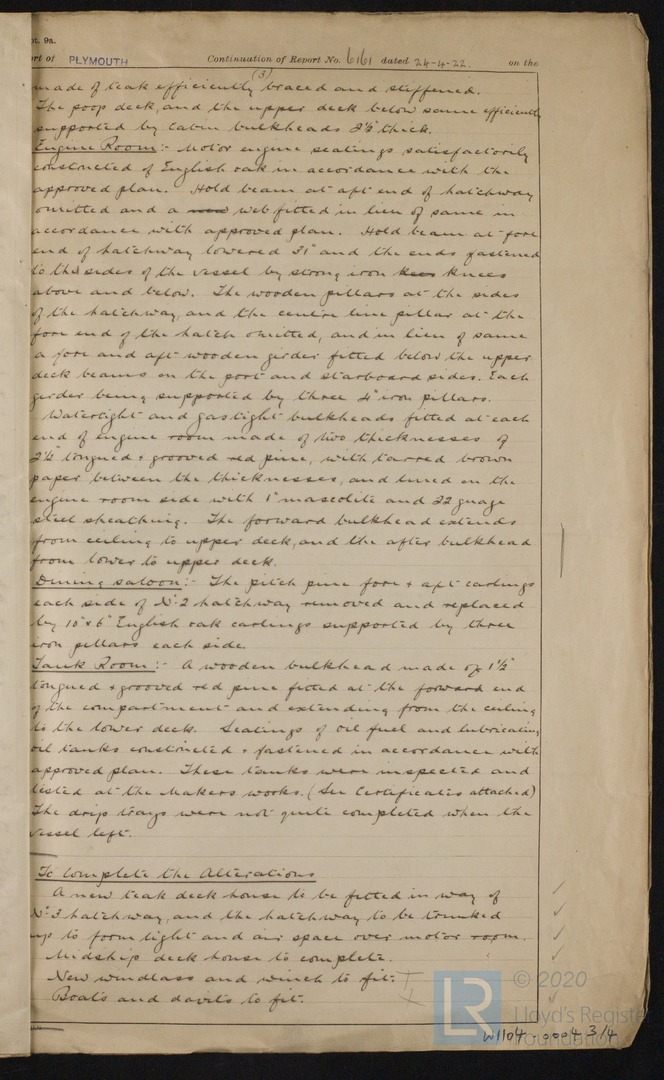 pt. 9a.
ort of PLYMOUTH Continuation of Report No. 6161 dated 24-4-22. on the
(3)
made of teak efficiently braced and stiffened.
The poop deck, and the upper deck below same efficiently
supported by cabin bulkheads 2½" thick.
Engine Room:- Motor engine seatings satisfactorily
constructed of English oak in accordance with the
approved plan. Hold beam at aft end of hatchway
omitted and a web fitted in lieu of same in
accordance with approved plan. Hold beam at fore
end of hatchway lowered 31" and the ends fastened
to the sides of the vessel by strong iron knees
above and below. The wooden pillars at the sides
of the hatchway, and the centre line pillar at the
fore end of the hatch omitted, and in lieu of same
a fore and aft wooden girder fitted below the upper
deck beams on the port and starboard sides. Each
girder being supported by three 4" iron pillars.
Watertight and gastight bulkheads fitted at each
end of engine room made of two thicknesses of
2½" tongued & grooved red pine, with tarred brown
paper between the thicknesses, and lined on the
engine room side with 1" mascolite and 22 guage
steel sheathing. The forward bulkhead extends
from ceiling to upper deck, and the after bulkhead
from lower to upper deck.
Dining saloon:- The pitch pine fore & aft carlings
each side of No. 2 hatchway removed and replaced
by 10" x 6" English oak carlings supported by three
iron pillars each side.
Tank Room:- A wooden bulkhead made of 1½"
tongued & grooved red pine fitted at the forward end
of the compartment and extending from the ceiling
to the lower deck. Seatings of oil fuel and lubricating
oil tanks constructed & fastened in accordance with
approved plan. These tanks were inspected and
tested at the Makers works. (See Certificates attached)
The drip trays were not quite completed when the
vessel left.
To Complete the Alterations
A new teak deck house to be fitted in way of
No. 3 hatchway, and the hatchway to be trunked
up to form light and air space over motor room.
Midship deck house to complete.
New windlass and winch to fit.
Boats and davits to fit.
© 2020
Lloyd's Register
Foundation
W1104-0004 3/4